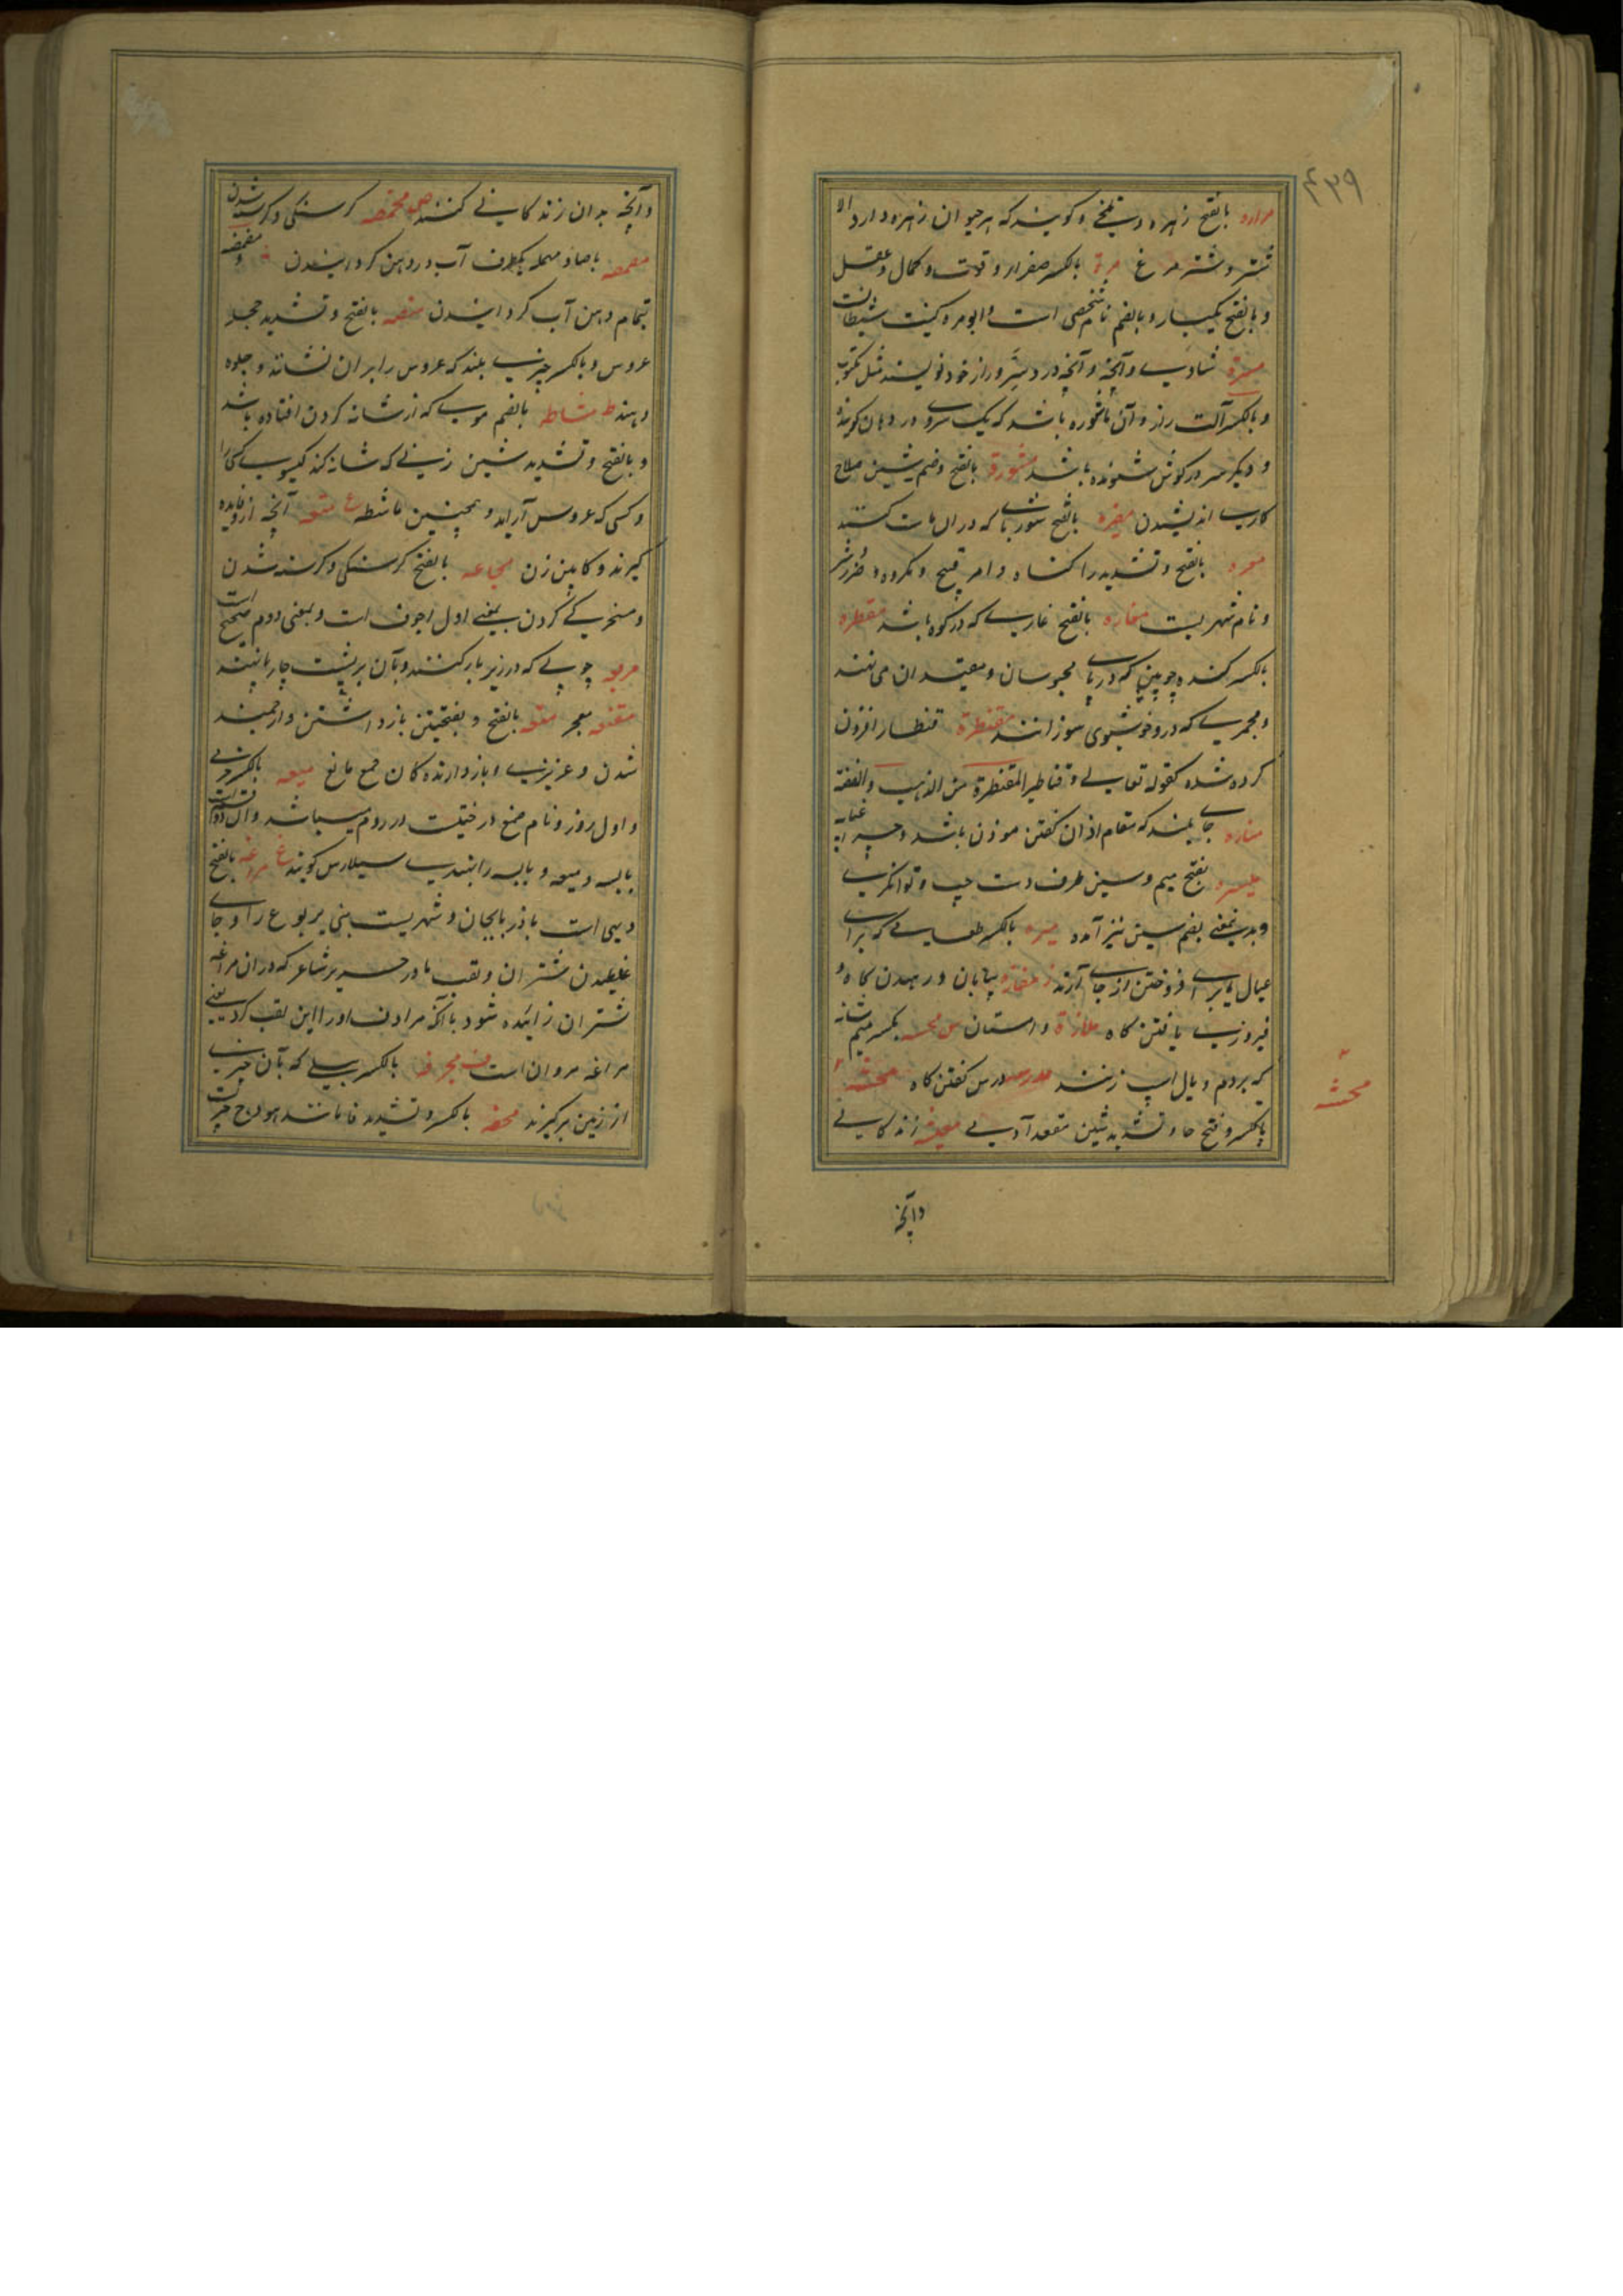 ۴۳۹
مراره بالفتح زهره و تلخی و کویند که هر حیوان زهره دارد الا
شتر و شتر مرغ مرة بالکسر صفرا و قوت و کمال و عقل
و بالفتح یکبار و بالضم نام شخصی است و ابو مره کنیت شیطان
مسرة شادی و آنچه و آنچه در سر و راز خود نویسند مثل مکتوب
و بالکسر آلت راز و آن ماشوره باشد که یک سر وی در دهان کوینده
و دیکر سر در کوش شنونده باشد مشورة بالفتح و ضم شین صلاح
کاری اندیشیدن مضیره بالفتح شوربای که در ان ماست کنند
معره بالفتح و تشدید را کناه و امر قبیح و مکروه و
و نام شهریست مغاره بالفتح غاری که در کوه باشد مقطره
بالکسر کنده چوبین که در پای محبوسان و مقیدان می نهند
و مجمری که درو خوشبوی سوزانند مقنطرة قنطار افزون
کرده شده کقوله تعالی و قناطیر المقنطرة من الذهب و الفضة
مناره جای بلند که مقام اذان کفتن موذن باشد و چراغ پایه
میسره بفتح میم و سین طرف دست چپ و توانکری
و بدین معنی بضم سین نیز آمده میره بالکسر طعامی که برای
عیال یا برای فروختن از جای آرند ز مفازه بیابان و رهیدن کاه و
فیروزی یافتن کاه ملازة و استان س محسه بکسر میم شانه
که بر دم و یال اسپ زنند مدرسه درس کفتن کاه محشه
بالکسر و فتح حا و تشدید شین مقعد آدمی معیشه زندکانی
محشه
وآنچه
و آنچه بدان زندکانی کنند ص مخمصه کرسنکی و کرسنه شدن
مصمصه با صاد مهمله بطرف آب در دهن کردانیدن و مضمضه
بتمام دهن آب کردانیدن منصه بالفتح و تشدید حجله
عروس و بالکسر چیزی بلند که عروس را بر ان نشانند و جلوه
دهند ط مشاطه بالضم موی که از شانه کردن افتاده باشد
و بالفتح و تشدید شین زنی که شانه کند کیسوی کسی را
و کسی که عروس آراید و همچنین ماشطه ع متعه آنچه ازو فایده
کیرند و کابین زن مجاعه بالفتح کرسنکی و کرسنه شدن
و مسخرکی کردن بمعنی اول اجوف است و بمعنی دوم صحیح است
مربعه چوبی که در زیر بار کنند و بآن بر پشت چارپا نهند
مقنعه معجر منعه بالفتح و بفتحتین بازداشتن و ارجمند
شدن و عزیزی و بازدارنده کان جمع مانع میعه بالکسر
و اول روز و نام صمغ درختیست در روم میباشد و آن دو قسم است
یابسه و میعه و یابسه را بهندی سیلارس کویند غ مراغه بالفتح
دیهی است باذربایجان و شهریست بنی یربوع را و جای
غلطیدن شتران و لقب مادر جریر شاعر که در ان مراغه
شتران زائیده شود با آنکه مرادف او را این لقب کرد یعنی
مراغه مروان است ف مجرفه بالکسر بیلی که بآن چیزی
از زمین برکیرند محفه بالکسر و تشدید فا مانند هودج چیزیست